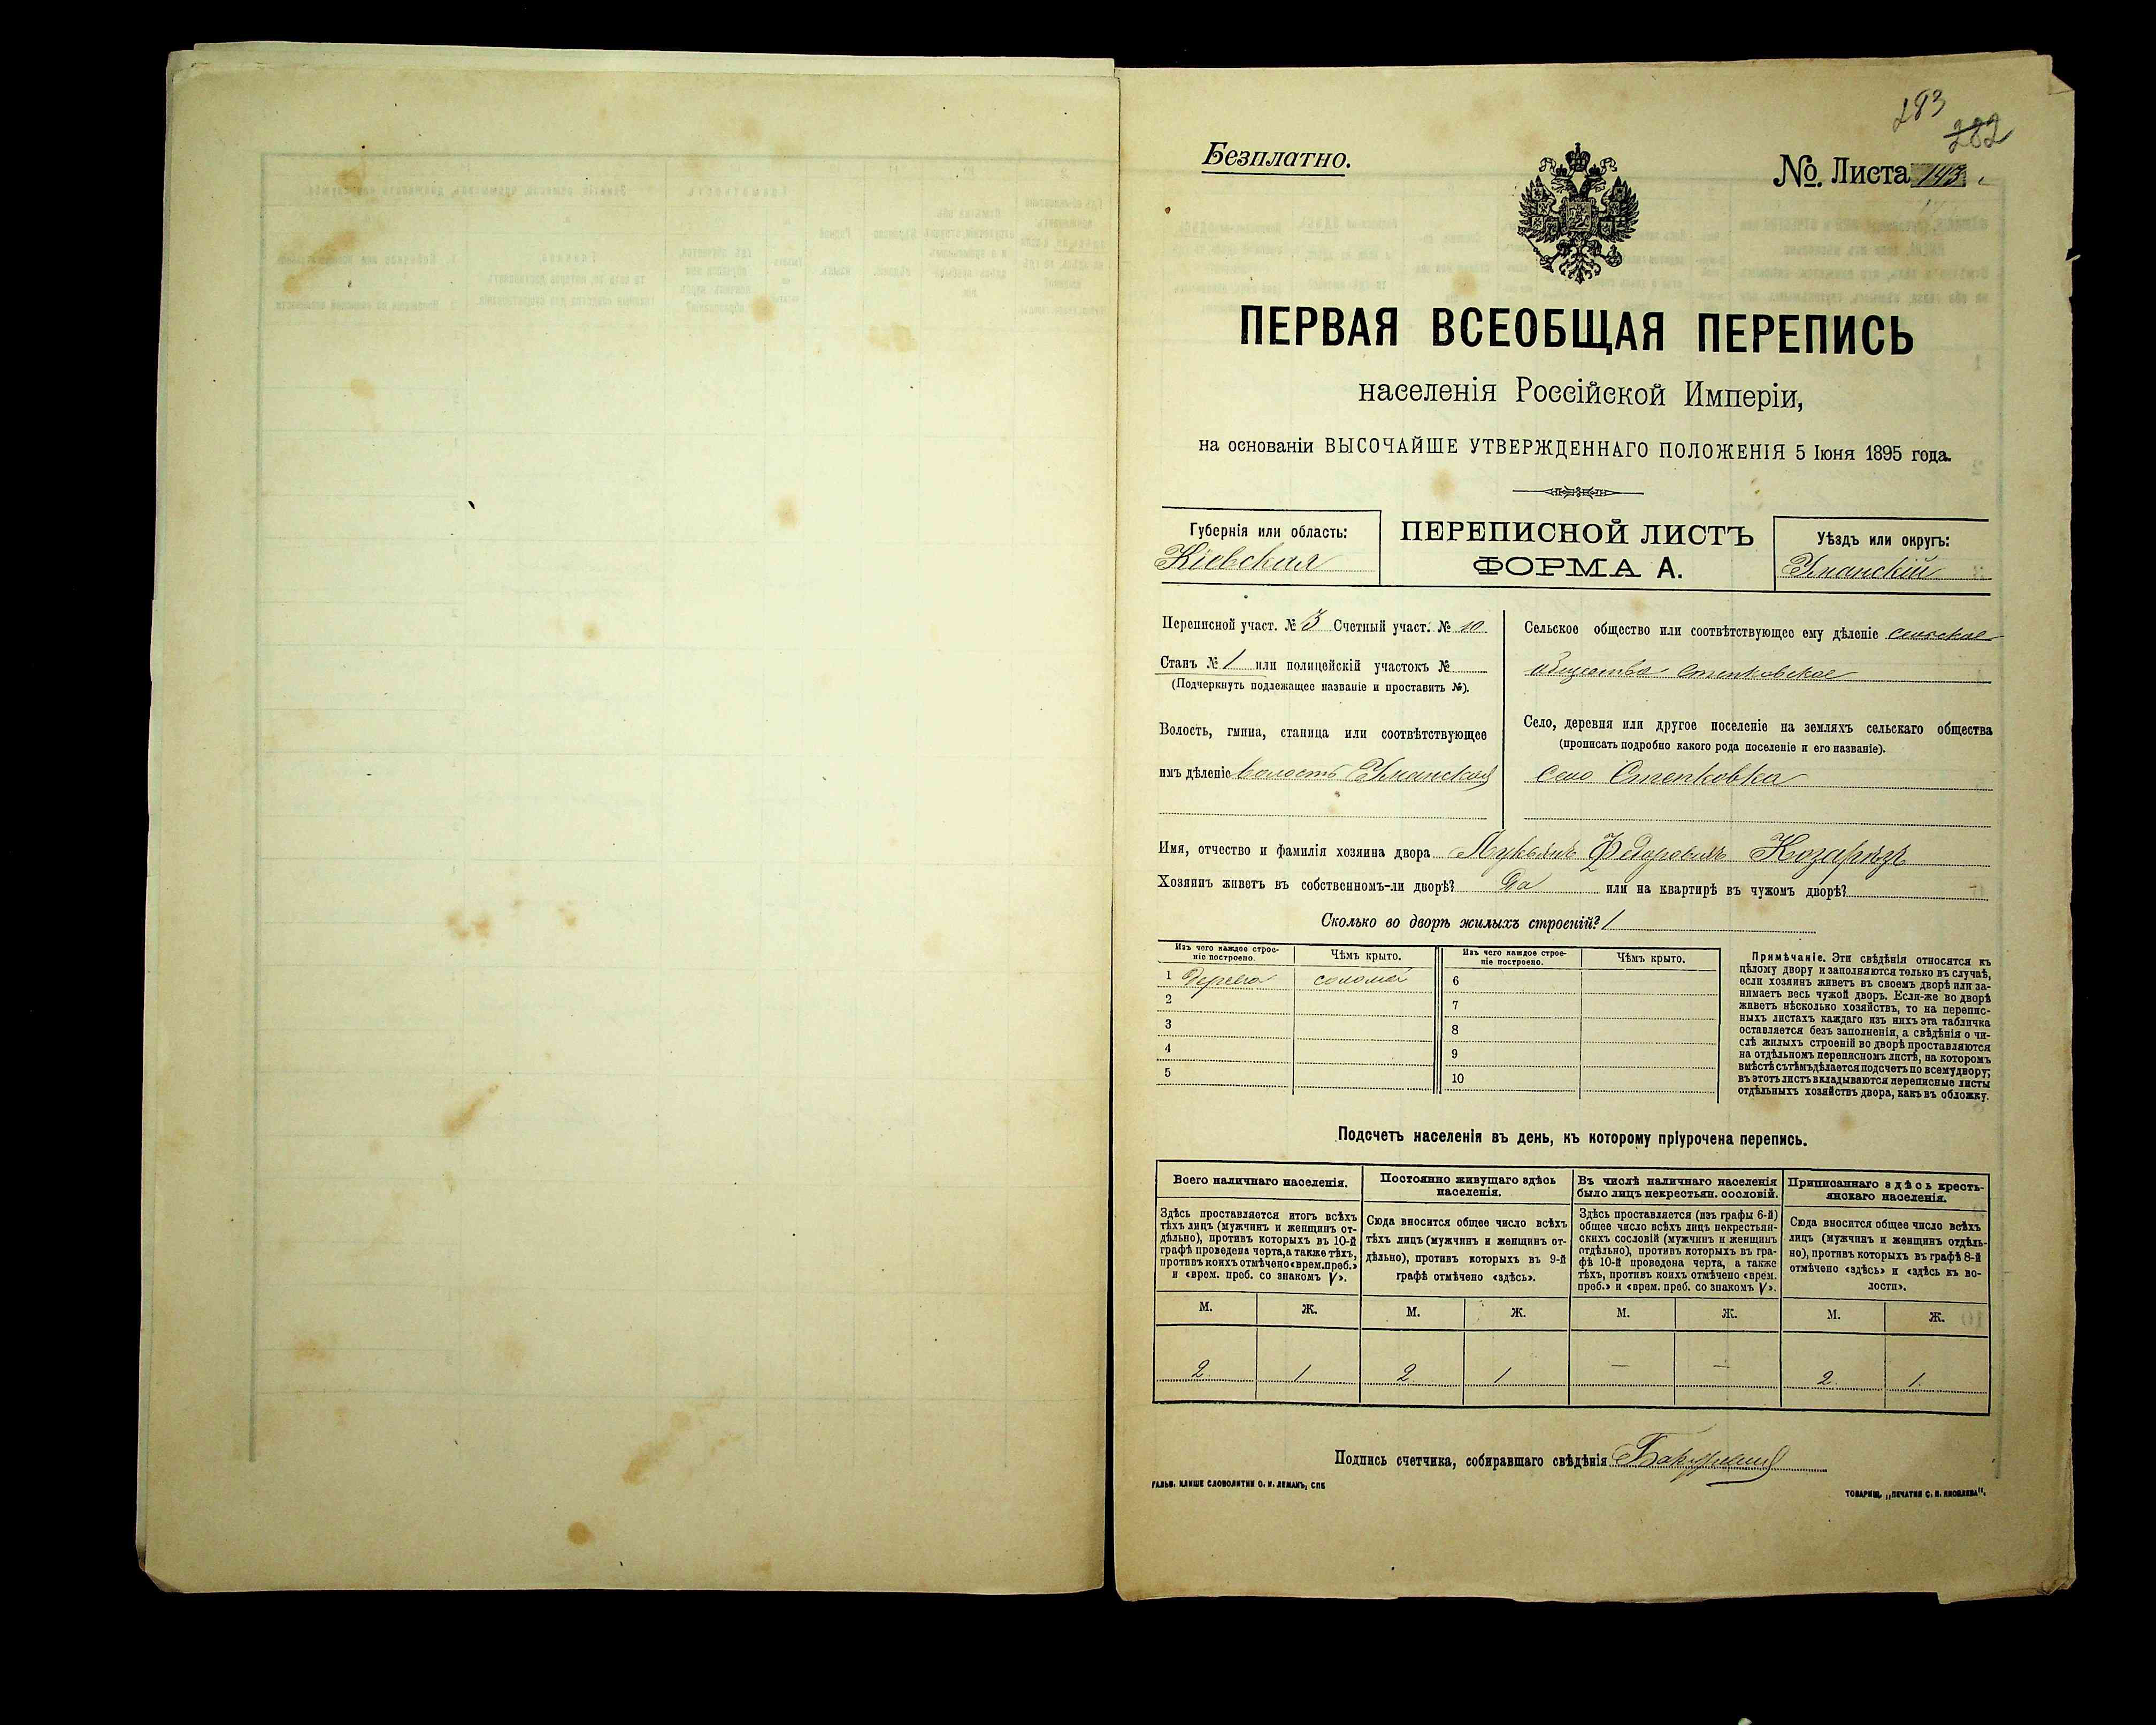 283
282
Безплатно.
№. Листа 143
ПЕРВАЯ ВСЕОБЩАЯ ПЕРЕПИСЬ
населенія Россійской Имперіи,
на основаніи ВЫСОЧАЙШЕ УТВЕРЖДЕННАГО ПОЛОЖЕНІЯ 5 Іюня 1895 года.
Губернія или область:
Кіевская
ПЕРЕПИСНОЙ ЛИСТЪ
ФОРМА А.
Уѣздъ или округъ:
Уманскій
Переписной участ. № 3 Счетный участ. № 10
Станъ № 1 или полицейскій участокъ №
(Подчеркнуть подлежащее названіе и проставить №).
Волость, гмина, станица или соотвѣтствующее
имъ дѣленіе волость Уманская
Сельское общество или соотвѣтствующее ему дѣленіе сельское
общество Степковское
Село, деревня или другое поселеніе на земляхъ сельскаго общества
(прописать подробно какого рода поселеніе и его названіе).
Село Степковка
Имя, отчество и фамилія хозяина двора Лукьянъ Федоровичъ
Хозяинъ живетъ въ собственномъ-ли дворѣ? Да или на квартирѣ въ чужомъ дворѣ? -
Сколько во дворѣ жилыхъ строеній? 1
Изъ чего каждое строе-
ніе построено.
Чѣмъ крыто.
Изъ чего каждое строе-
ніе построено.
Чѣмъ крыто.
1 Дерева соломой
2
3
4
5
6
7
8
9
10
Примѣчаніе. Эти свѣдѣнія относятся къ
цѣлому двору и заполняются только въ случаѣ,
если хозяинъ живетъ въ своемъ дворѣ или за-
нимаетъ весь чужой дворъ. Если-же во дворѣ
живетъ нѣсколько хозяйствъ, то на перепис-
ныхъ листахъ каждаго изъ нихъ эта табличка
оставляется безъ заполненія, а свѣдѣнія о чи-
слѣ жилыхъ строеній во дворѣ проставляются
на отдѣльномъ переписномъ листѣ, на которомъ
вмѣстѣ съ тѣмъ дѣлается подсчетъ по всему двору;
въ этотъ листъ вкладываются переписные листы
отдѣльныхъ хозяйствъ двора, какъ въ обложку.
Подсчетъ населенія въ день, къ которому пріурочена перепись.
Всего наличнаго населенія.
Здѣсь проставляется итогъ всѣхъ
тѣхъ лицъ (мужчинъ и женщинъ от-
дѣльно), противъ которыхъ въ 10-й
графѣ проведена черта, а также тѣхъ,
противъ коихъ отмѣчено «врем. преб.»
и «врем. преб. со знакомъ V».
Постоянно живущаго здѣсь
населенія.
Сюда вносится общее число всѣхъ
тѣхъ лицъ (мужчинъ и женщинъ от-
дѣльно), противъ которыхъ въ 9-й
графѣ отмѣчено «здѣсь».
Въ числѣ наличнаго населенія
было лицъ некрестьян. сословій.
Здѣсь проставляется (изъ графы 6-й)
общее число всѣхъ лицъ некрестьян-
скихъ сословій (мужчинъ и женщинъ
отдѣльно), противъ которыхъ въ гра-
фѣ 10-й проведена черта, а также
тѣхъ, противъ коихъ отмѣчено «врем.
преб.» и «врем. преб. со знакомъ V».
Приписаннаго здѣсь кресть-
янскаго населенія.
Сюда вносится общее число всѣхъ
лицъ (мужчинъ и женщинъ отдѣль-
но), противъ которыхъ въ графѣ 8-й
отмѣчено «здѣсь» и «здѣсь къ во-
лости».
М. Ж. М. Ж. М. Ж. М. Ж.
2 1 2 1 — — 2 1
Подпись счетчика, собиравшаго свѣдѣнія
ГАЛЬВ. КЛИШЕ СЛОВОЛИТНИ О. И. ЛЕМАНЪ, СПБ
ТОВАРИЩ. „ПЕЧАТНИ С. П. ЯКОВЛЕВА".